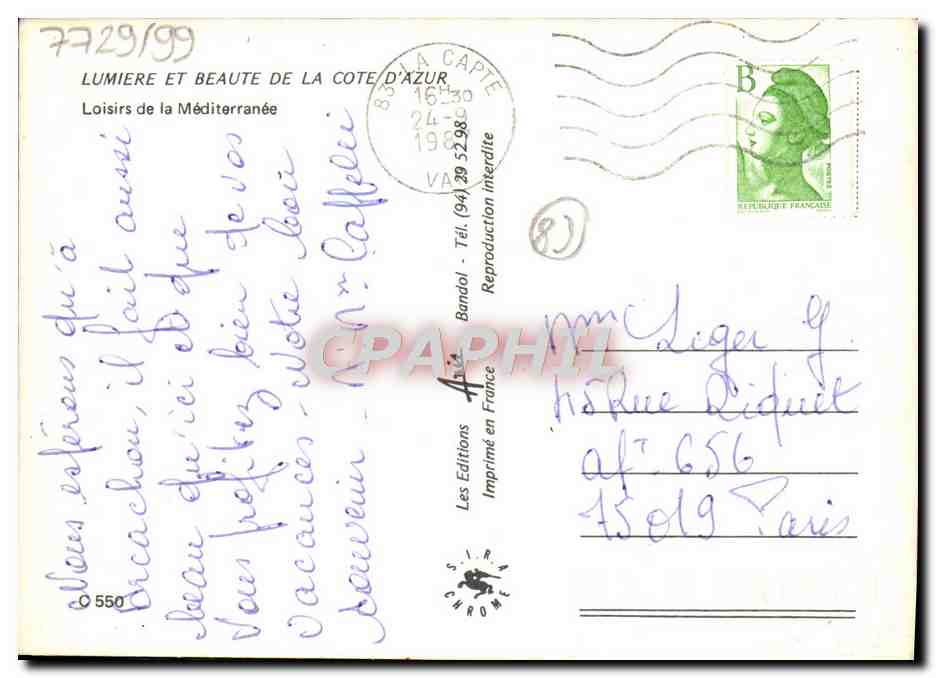 7729/99
LUMIERE ET BEAUTE DE LA COTE D'AZUR
Loisirs de la Méditerranée
83 LA CAPTE
16H30
24-9
VAR
B
POSTES
REPUBLIQUE FRANÇAISE
Nous espérons qu'à
Arcachon, il fait aussi
beau qu'ici et que
vous profitez bien de vos
vacances. Notre bon
souvenir
C 550
Les Editions Aris Bandol - Tél. (94) 29 52 98
Imprimé en France Reproduction interdite
S.I.R.A
CHROME
CPAPHIL
Mme Leger G.
Rue Riquet
apt 656
75019 Paris